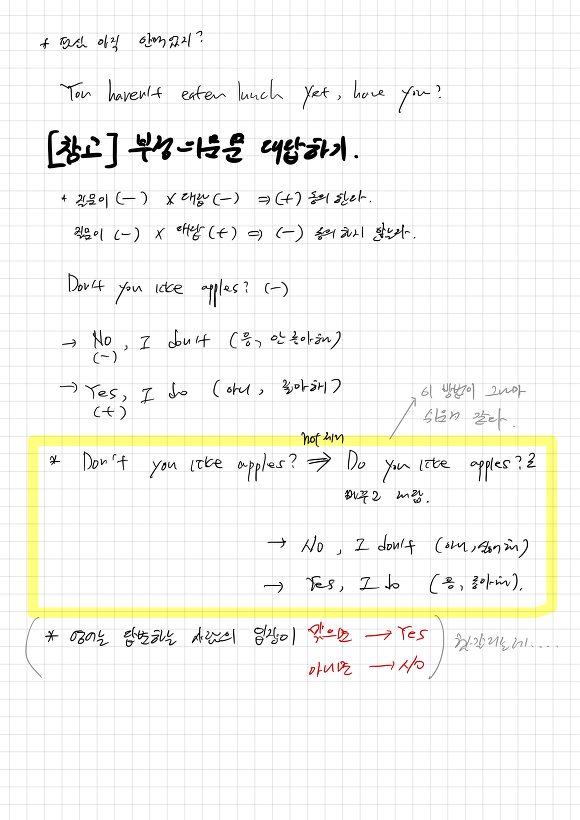 * 점심 아직 안먹었지?
You haven't eaten lunch yet, have you?
[참고] 부정의문문 대답하기.
* 질문이 (-) × 대답 (-) ⇒ (+) 동의한다.
질문이 (-) × 대답 (+) ⇒ (-) 동의하지 않는다.
Don't you like apples? (-)
→ No, I don't (응, 안좋아해)
(-)
→ Yes, I do (아니, 좋아해)
(+)
이 방법이 그나마
쉬운것 같다.
not 제거
* Don't you like apples? ⇒ Do you like apples?로
바꾸고 대답.
→ No, I don't (아니, 싫어해)
→ Yes, I do (응, 좋아해).
(* 영어는 답변하는 사람의 입장이 맞으면 → Yes
아니면 → No)
헷갈리는데....